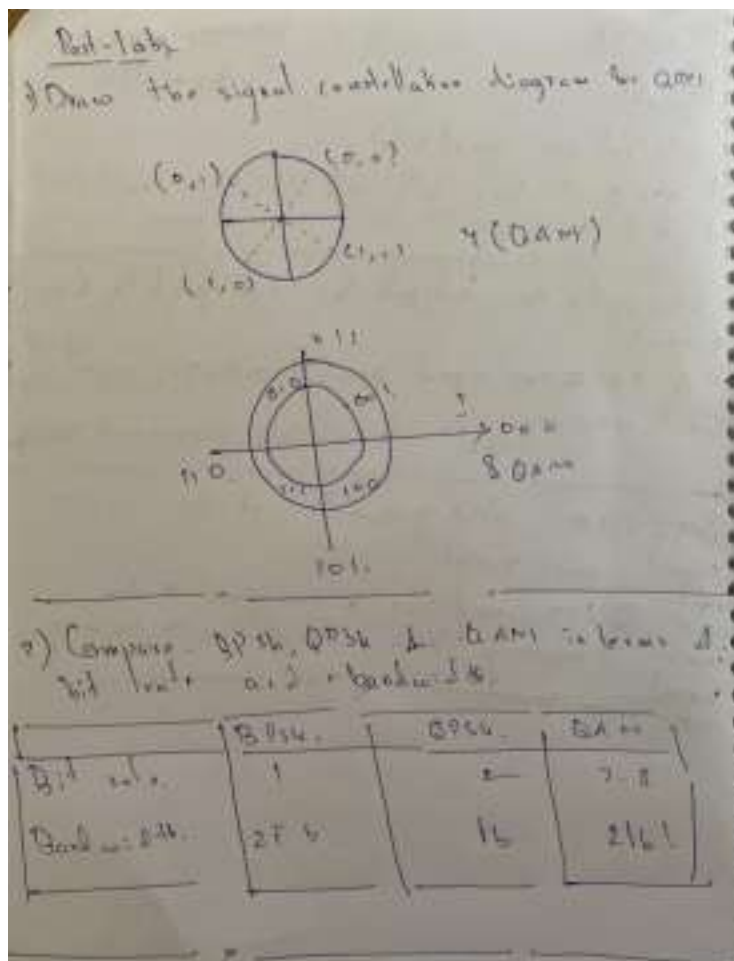 Post-lab
1) Draw the signal constellation diagram for QAM
(0,1) (0,0)
(1,0) (1,1)
4 (QAM)
011
010 001
000
8 QAM
110
111 100
101
2) Compare BPSK, QPSK & QAM in terms of
bit rate and bandwidth.
BPSK. QPSK. QAM
Bit rate. 1 2
Bandwidth. 2Fb fb